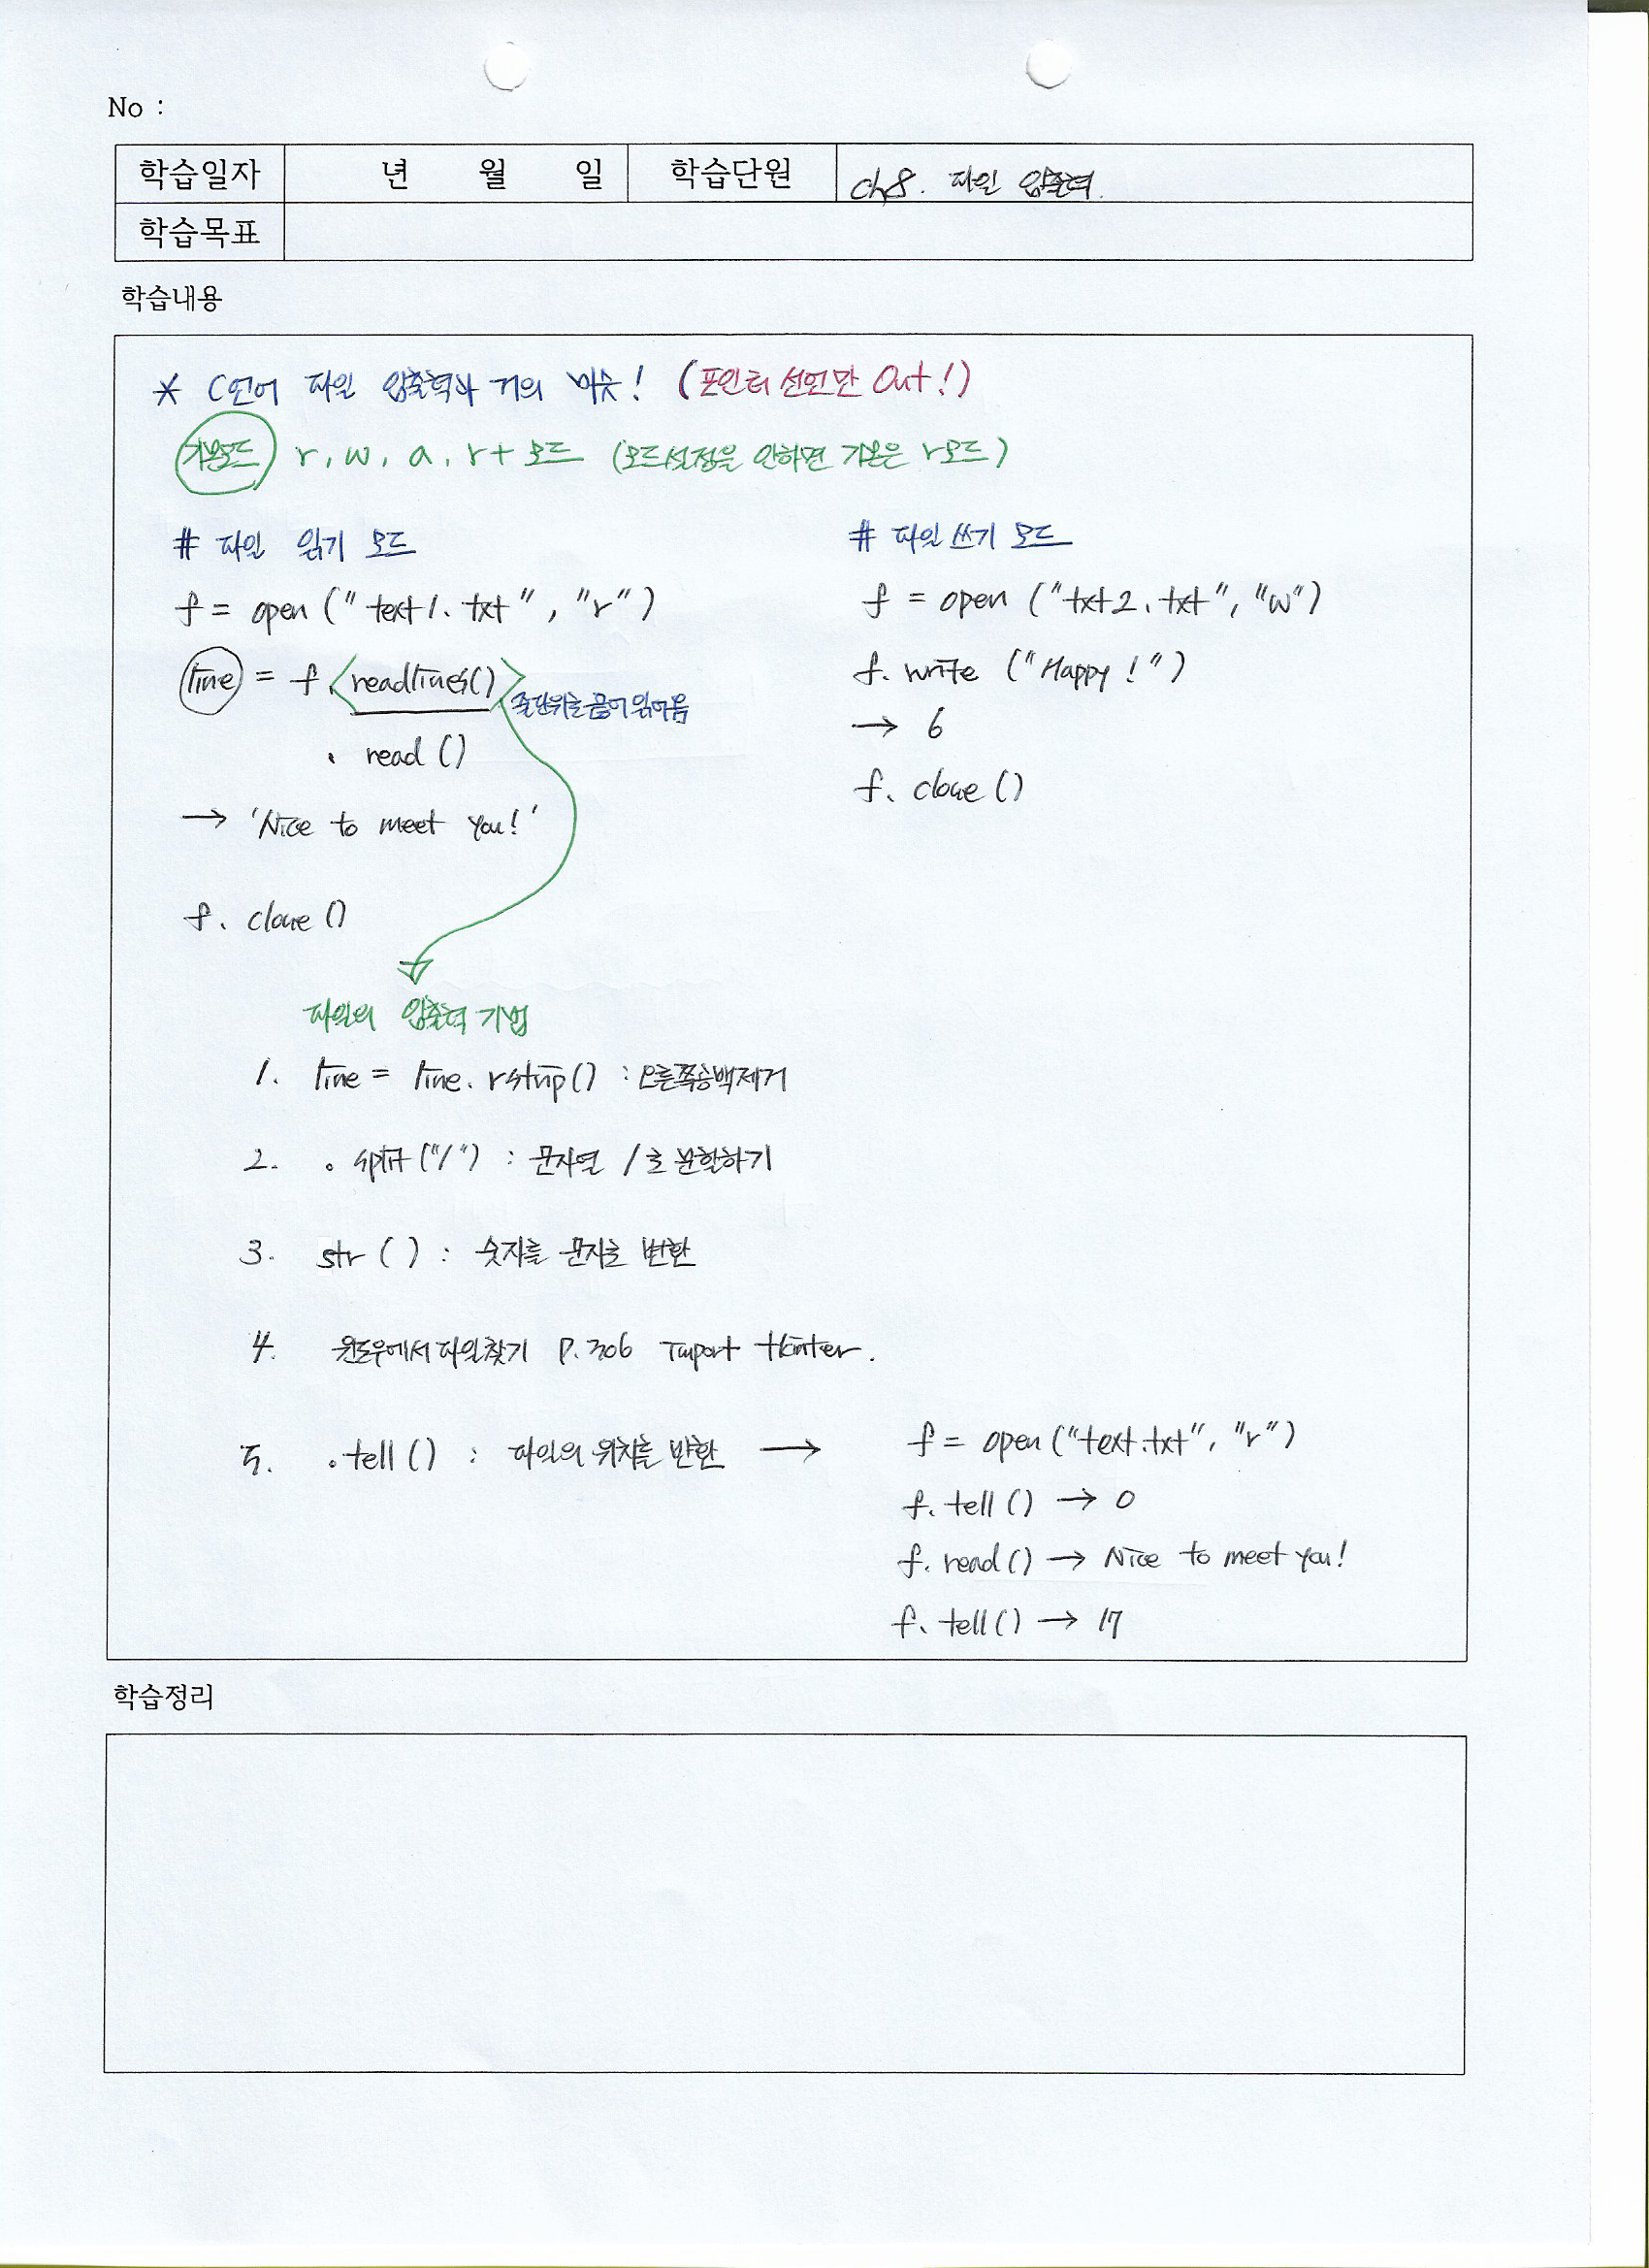 No :
학습일자 년 월 일 학습단원 ch8. 파일 입출력.
학습목표
학습내용
* C언어 파일 입출력과 거의 비슷! (포인터 선언만 Out!)
기본모드 r, w, a, r+ 모드 (모드설정을 안하면 기본은 r모드)
# 파일 읽기 모드
f = open ("text1.txt", "r")
line = f. readlines() 줄단위로 끊어 읽어옴
. read ()
→ 'Nice to meet you!'
f. close ()
# 파일 쓰기 모드
f = open ("txt2.txt", "w")
f. write ("Happy!")
→ 6
f. close ()
파일의 입출력 기법
1. line = line. rstrip() : 오른쪽공백제거
2. . split("/") : 문자열 /로 분할하기
3. str ( ) : 숫자를 문자로 변환
4. 윈도우에서 파일찾기 P.306 Import tkinter.
5. .tell () : 파일의 위치를 반환 →
f = open ("text.txt", "r")
f. tell () → 0
f. read () → Nice to meet you!
f. tell () → 17
학습정리